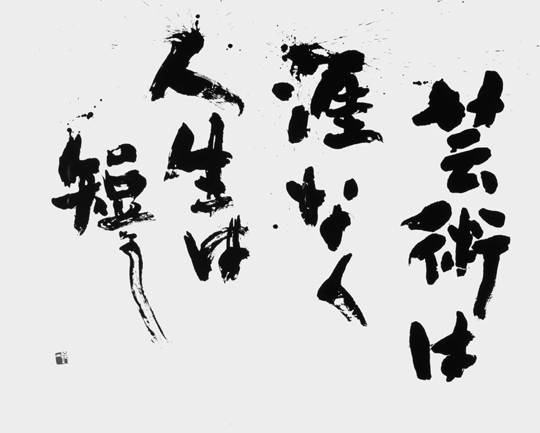 芸術は
涯なく
人生は
短し